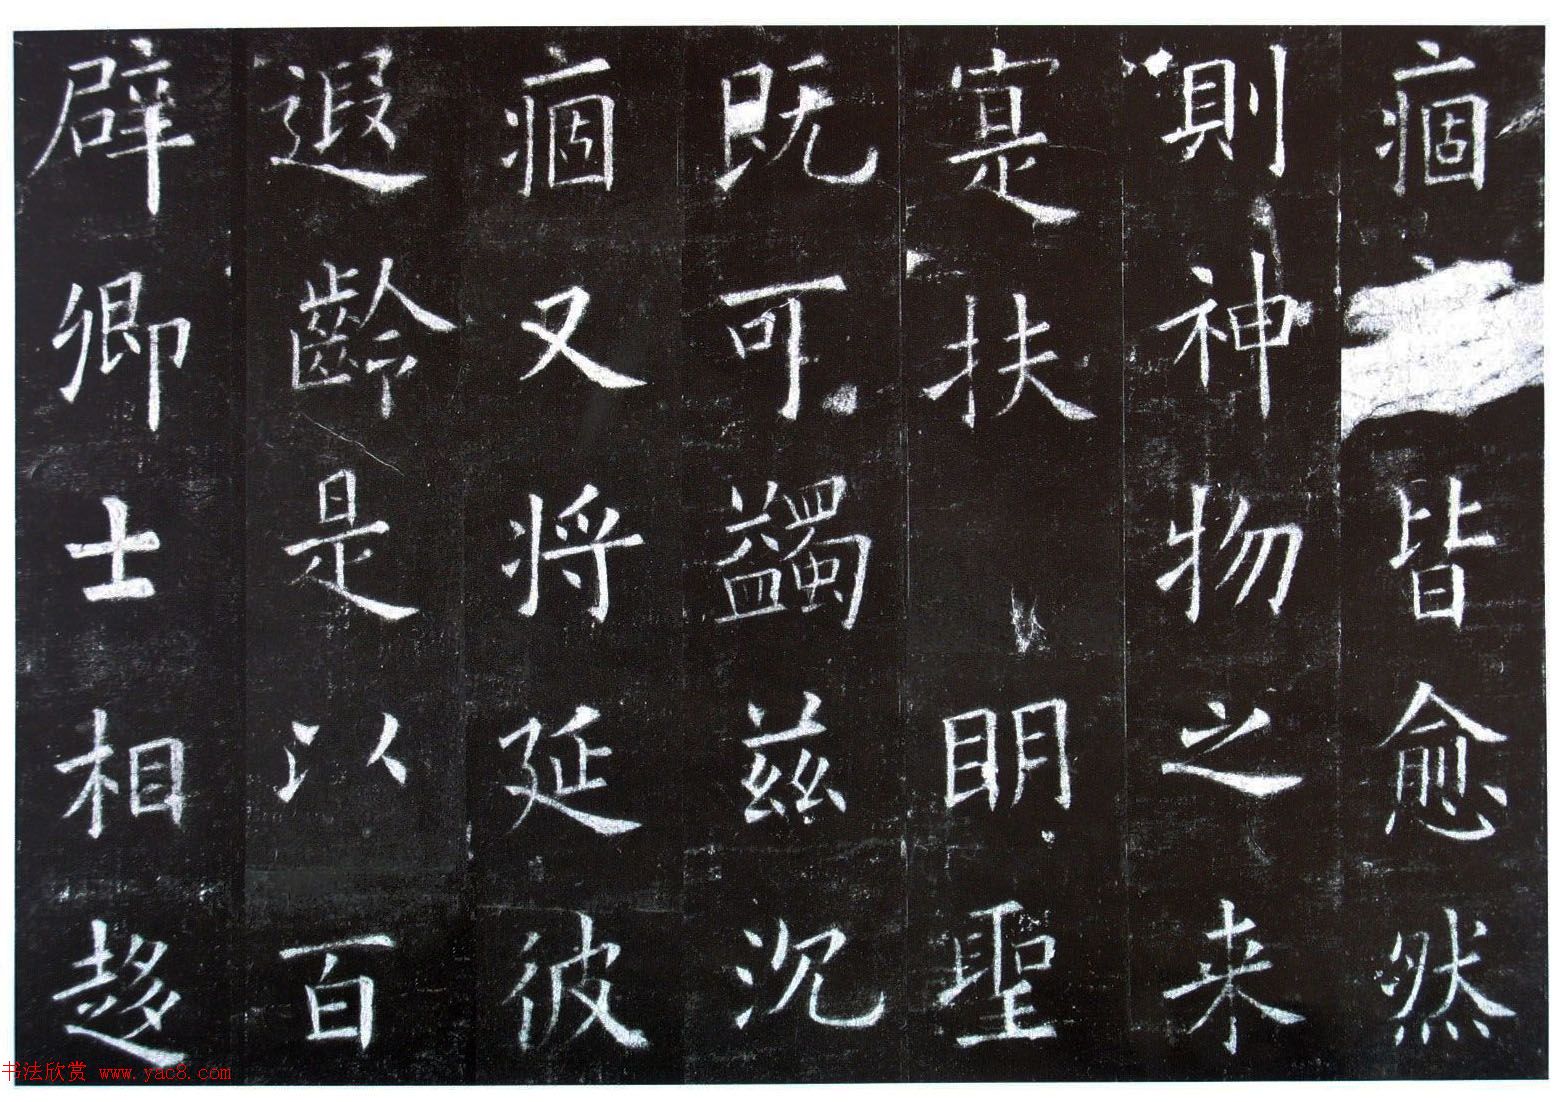 痼皆愈然
則神物之来
寔扶眀聖
既可蠲兹沉
痼又将延彼
遐齡是以百
辟卿士相趍
书法欣赏 www.yac8.com